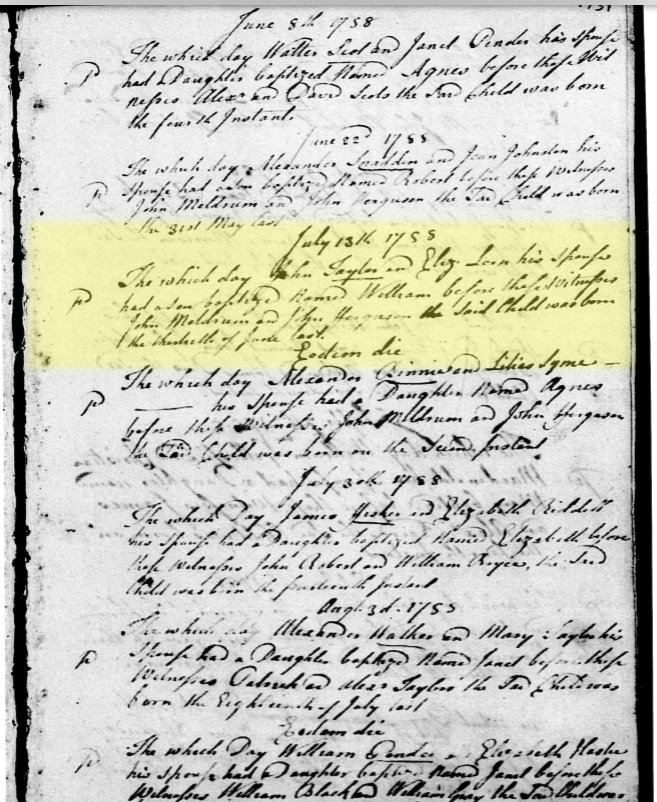 June 8th 1758
The which day Walter Scot and Janet Pender his Spouse
p had a Daughter baptized Named Agnes before these Wit
nesses Alexr and David Scots the Said Child was born
the fourth Instant
June 22d 1758
The which day Alexander Snadden and Jean Johnston his
p Spouse had a Son baptized Named Robert before these Witnesses
John Meldrum and John Ferguson the Said Child was born
the 31st May last
July 13th 1758
The which day John Taylor and Eliz. his Spouse
p had a Son baptized Named William before these Witnesses
John Meldrum and John Ferguson the Said Child was born
the of June last.
Eodem die
The which day Alexander Binnie and Lilias Syme
p his Spouse had a Daughter Named Agnes
before these Witnesses John Meldrum and John Ferguson
the Said Child was born on the Instant
July 30th 1758
The which Day James and Elizabeth
his Spouse had a Daughter baptized Named Elizabeth before
these Witnesses John Robert and William Bryce, the Said
Child was born the fourteenth Instant
Augt 3d. 1758
The which day Alexander Walker and Mary Taylor his
p Spouse had a Daughter baptized Named Janet before these
Witnesses Patrick and Alexr Taylors the Said Child was
born the Eighteenth of July last
Eodem die
p The which Day William Elizabeth
his Spouse had a Daughter baptized Named Janet before these
Witnesses William Black and William the Said Child was